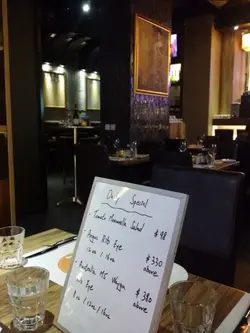 Daily Special
Tomato Mozzarella Salad $98
Angus Rib Eye $330
12oz / 16oz above
Australia M5 Wagyu
Rib Eye $380
8oz / 12oz / 16oz above